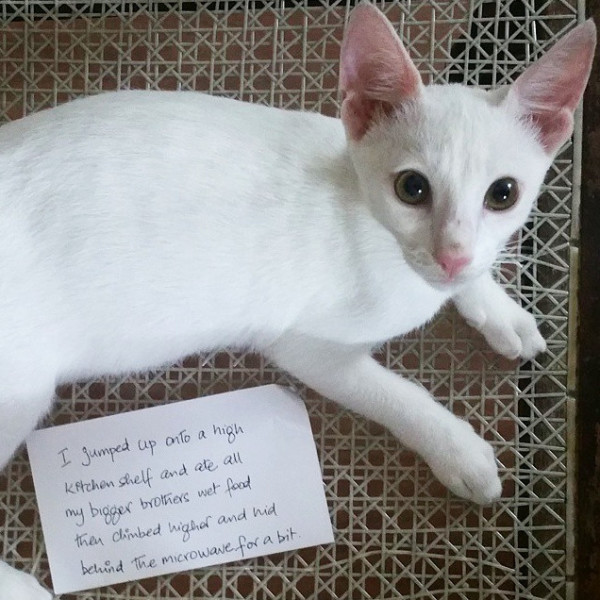 I jumped up onto a high
kitchen shelf and ate all
my bigger brothers wet food
then climbed higher and hid
behind the microwave for a bit.